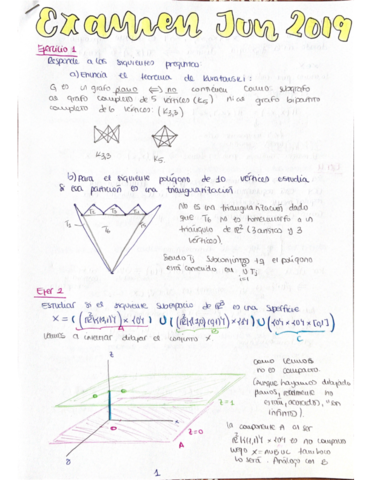 Examen Jun 2019
Ejercicio 1
Responde a las siguientes preguntas
a) Enuncia el teorema de Kuratowski:
G es un grafo plano <=> no contiene como subgrafo
al grafo completo de 5 vértices (K5) ni al grafo bipartito
completo de 6 vértices: (K3,3)
K3,3
K5
b) Para el siguiente polígono de 10 vértices estudia
si esa partición es una triangularización
No es una triangularización dado
que T6 no es homeomorfo a un
triángulo de R² (3 aristas y 3
vértices).
Siendo Tj subconjunto tq el polígono
está contenido en ∪ Tj
i=1
T5
T6
Ejer 2
Estudiar si el siguiente subespacio de R³ es una superficie
A
B
C
Vamos a intentar dibujar el conjunto X
como vemos
no es compacto
(Aunque hayamos dibujado
planos,
infinito).
la componente A al ser
no compacto
luego X = A∪B∪C tampoco
lo será. Análogo con B
z
z=1
z=0
A
B
1